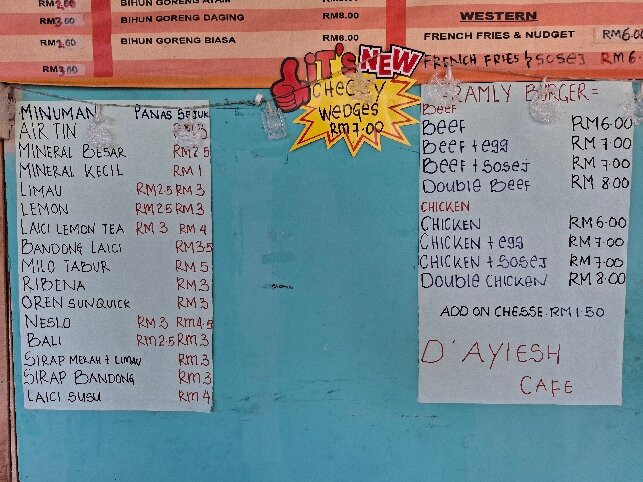 RM2.00
RM3.00
RM2.00
RM3.00
BIHUN GORENG AYAM
BIHUN GORENG DAGING RM8.00
BIHUN GORENG BIASA RM6.00
WESTERN
FRENCH FRIES & NUDGET RM6.00
FRENCH FRIES & SOSEJ RM6
IT'S NEW
CHEEZY
WEDGES
RM7.00
MINUMAN PANAS SEJUK
AIR TIN RM3
MINERAL BESAR RM2.5
MINERAL KECIL RM1
LIMAU RM2.5 RM3
LEMON RM2.5 RM3
LAICI LEMON TEA RM3 RM4
BANDONG LAICI RM3.5
MILO TABUR RM5
RIBENA RM3
OREN SUNQUICK RM3
NESLO RM3 RM4.5
BALI RM2.5 RM3
SIRAP MERAH + LIMAU RM3
SIRAP BANDONG RM3
LAICI SUSU RM4
RAMLY BURGER=
BEEF
BEEF RM6.00
BEEF + EGG RM7.00
BEEF + SOSEJ RM7.00
DOUBLE BEEF RM8.00
CHICKEN
CHICKEN RM6.00
CHICKEN + EGG RM7.00
CHICKEN + SOSEJ RM7.00
DOUBLE CHICKEN RM8.00
ADD ON CHESSE RM1.50
D'AYIESH
CAFE